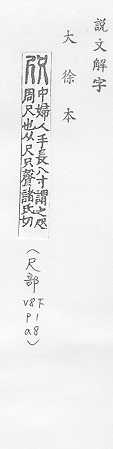 說文解字
大徐本
咫
中婦人手長八寸謂之咫
周尺也从尺只聲諸氏切
(尺部
v8下
p1
a8)